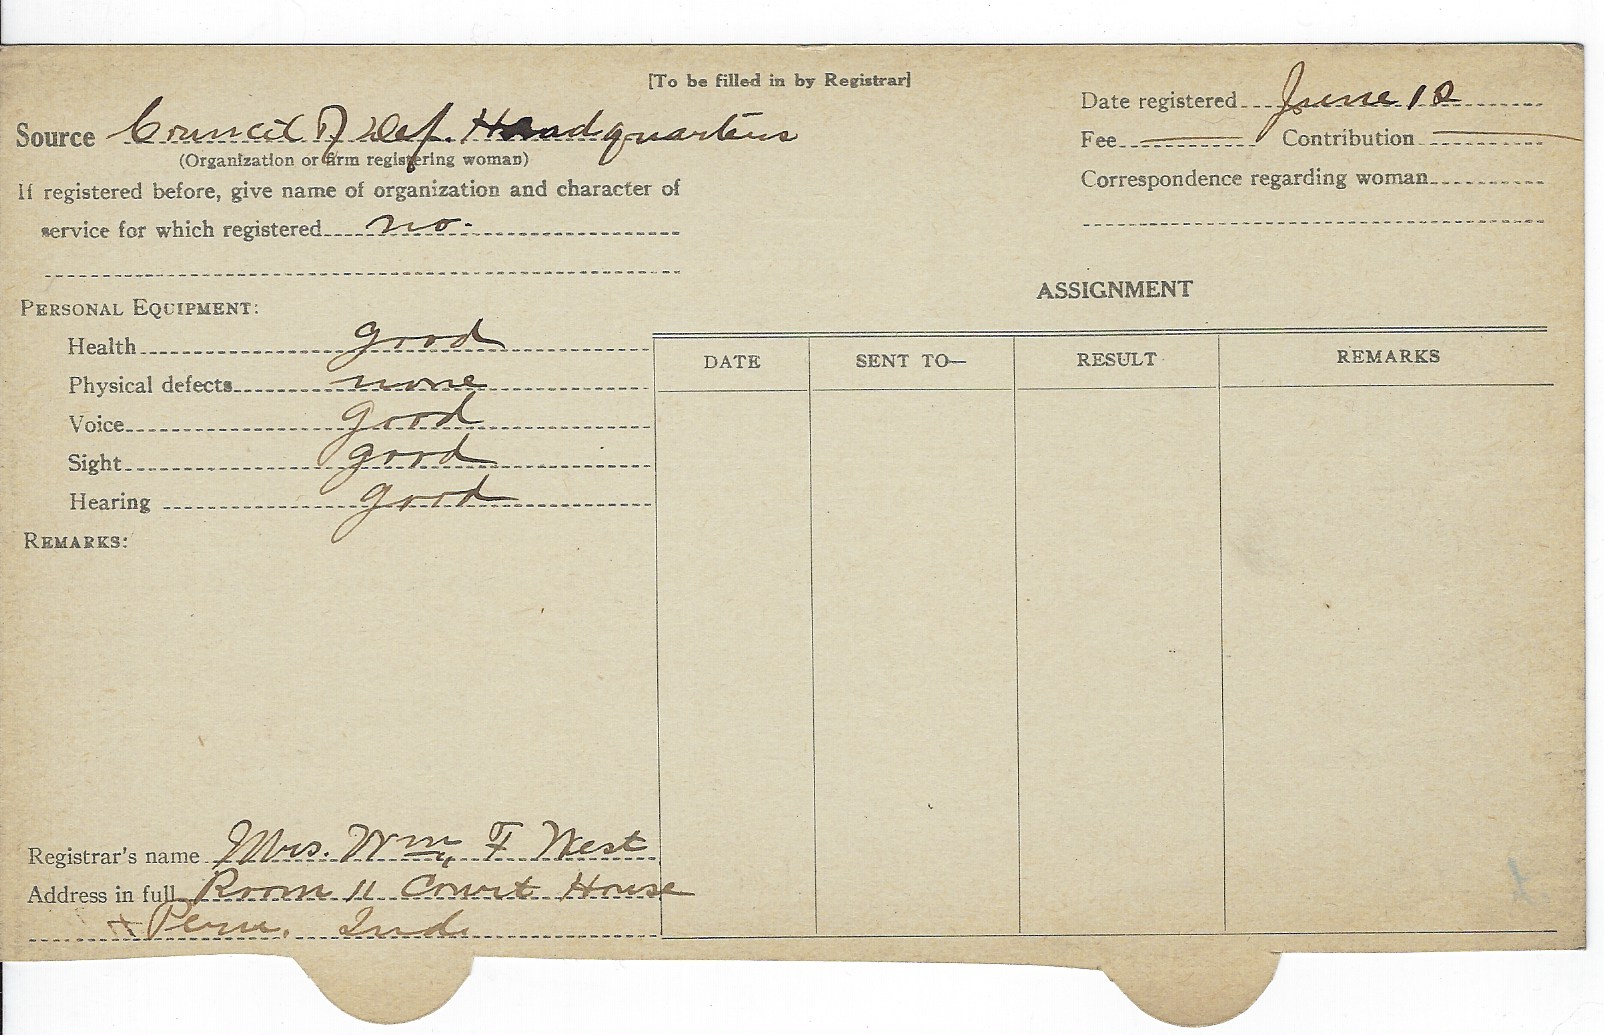 [To be filled in by Registrar]
Source Council of Def. Headquarters
(Organization or firm registering woman)
If registered before, give name of organization and character of
service for which registered no.
Date registered June 18
Fee — Contribution —
Correspondence regarding woman
PERSONAL EQUIPMENT:
Health good
Physical defects none
Voice good
Sight good
Hearing good
REMARKS:
ASSIGNMENT
DATE SENT TO— RESULT REMARKS
Registrar's name Mrs. Wm. F West
Address in full Room 11 Court House
Peru. Ind.